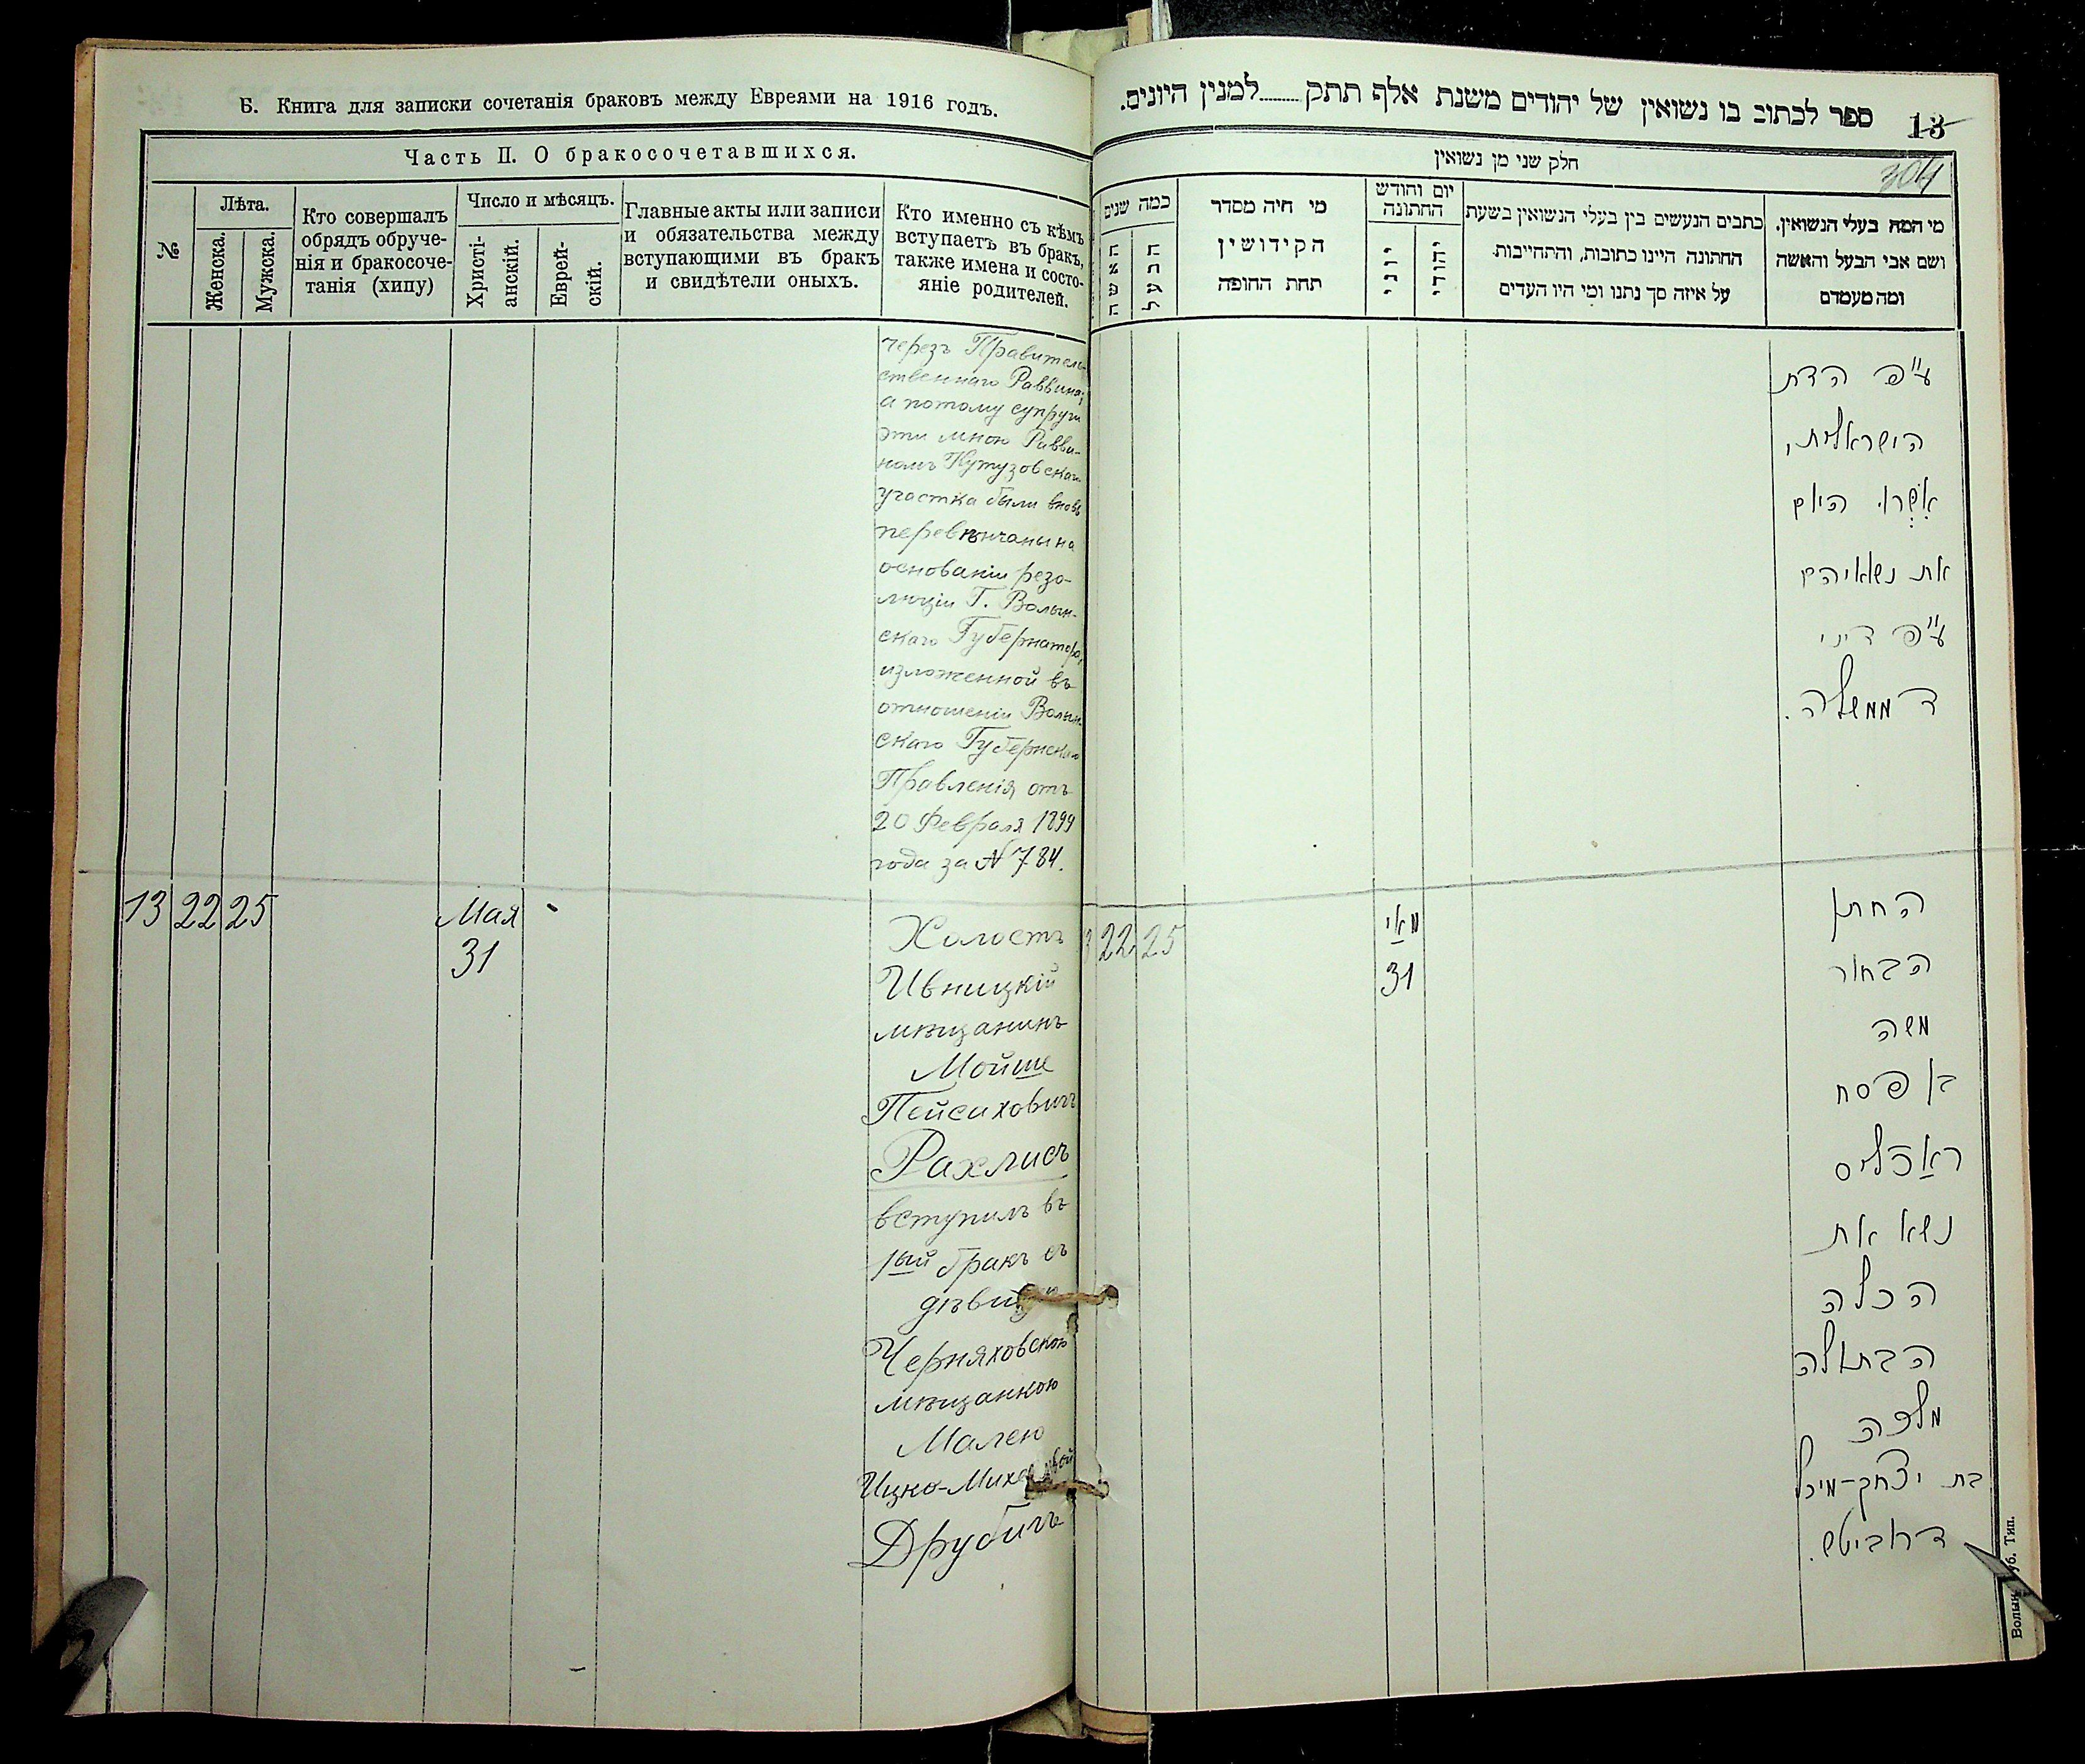 Б. Книга для записки сочетанія браковъ между Евреями на 1916 годъ.
Часть II. О бракосочетавшихся.
№
Лѣта.
Женска.
Мужска.
Кто совершалъ
обрядъ обруче-
нія и бракосоче-
танія (хипу)
Число и мѣсяцъ.
Христі-
анскій.
Еврей-
скій.
Главные акты или записи
и обязательства между
вступающими въ бракъ
и свидѣтели оныхъ.
Кто именно съ кѣмъ
вступаетъ въ бракъ,
также имена и состо-
яніе родителей.
черезъ Правитель-
ственнаго Раввина;
а потому супруги
эти мною Равви-
номъ Кутузовскаго
участка были вновь
перевѣнчаны на
основаніи резо-
люціи Г. Волын-
скаго Губернатора,
изложенной въ
отношеніи Волын-
скаго Губернскаго
Правленія отъ
20 Февраля 1899
года за № 784.
13 22 25 Мая -
31
Холостъ
Ивницкій
мѣщанинъ
Мойше
Пейсиховичъ
Рахлисъ
вступилъ въ
1ый бракъ съ
Черняховскою
мѣщанкою
Малею
Ицко-
Друбичъ
ספר לכתוב בו נשואין של יהודים משנת אלף תתק........למנין היונים.
13
304
חלק שני מן נשואין
מי המה בעלי הנשואין.
ושם אבי הבעל והאשה
ומה מעמדם
כתבים הנעשים בין בעלי הנשואין בשעת
החתונה היינו כתובות, והתחייבות
על איזה סך נתנו ומי היו העדים
יום וחודש
החתונה
יהודי
יוני
מי היה מסדר
הקידושין
תחת החופה
כמה שנים
הבעל
האשה
ע"פ הדת
הישראלית,
אשרו היום
את נשואיהם
ע"פ דיני
הממשלה.
22 25 מאי
31
החתן
הבחור
משה
בן פסח
ראַכליס
נשא את
הכלה
הבתולה
מלכה
בת יצחק-מיכל
דרוביטש.
Тип.